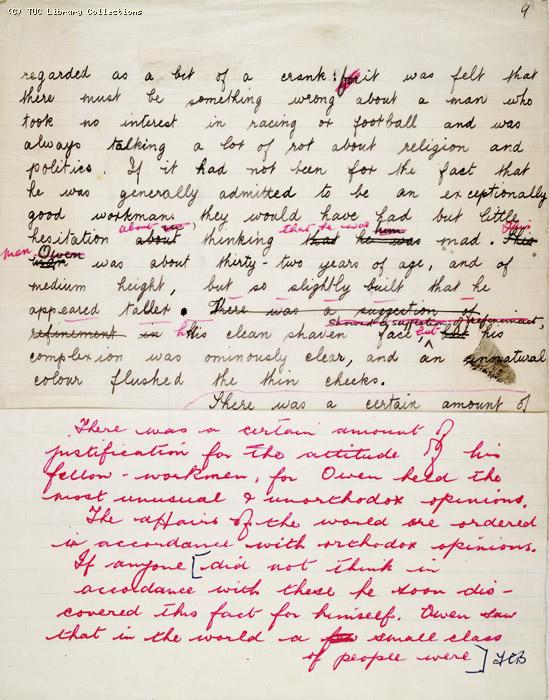 (c) TUC Library Collections
9
regarded as a bit of a crank: for it was felt that
there must be something wrong about a man who
took no interest in racing or football and was
always talking a lot of rot about religion and
politics. If it had not been for the fact that
he was generally admitted to be an exceptionally
good workman, they would have had but little
about that he was him This
hesitation about thinking that he was mad. This
man Owen
was about thirty-two years of age, and of
medium height, but so slightly built that he
appeared taller. There was a suggestion of
showed a suggestion of refinement,
refinement in his clean shaven face but his
complexion was ominously clear, and an unnatural
colour flushed the thin cheeks.
There was a certain amount of
There was a certain amount of
justification for the attitude of his
fellow-workmen, for Owen held the
most unusual & unorthodox opinions.
The affairs of the world are ordered
in accordance with orthodox opinions.
If anyone [did not think in
accordance with these he soon dis-
covered this fact for himself. Owen saw
that in the world a small class
of people were]